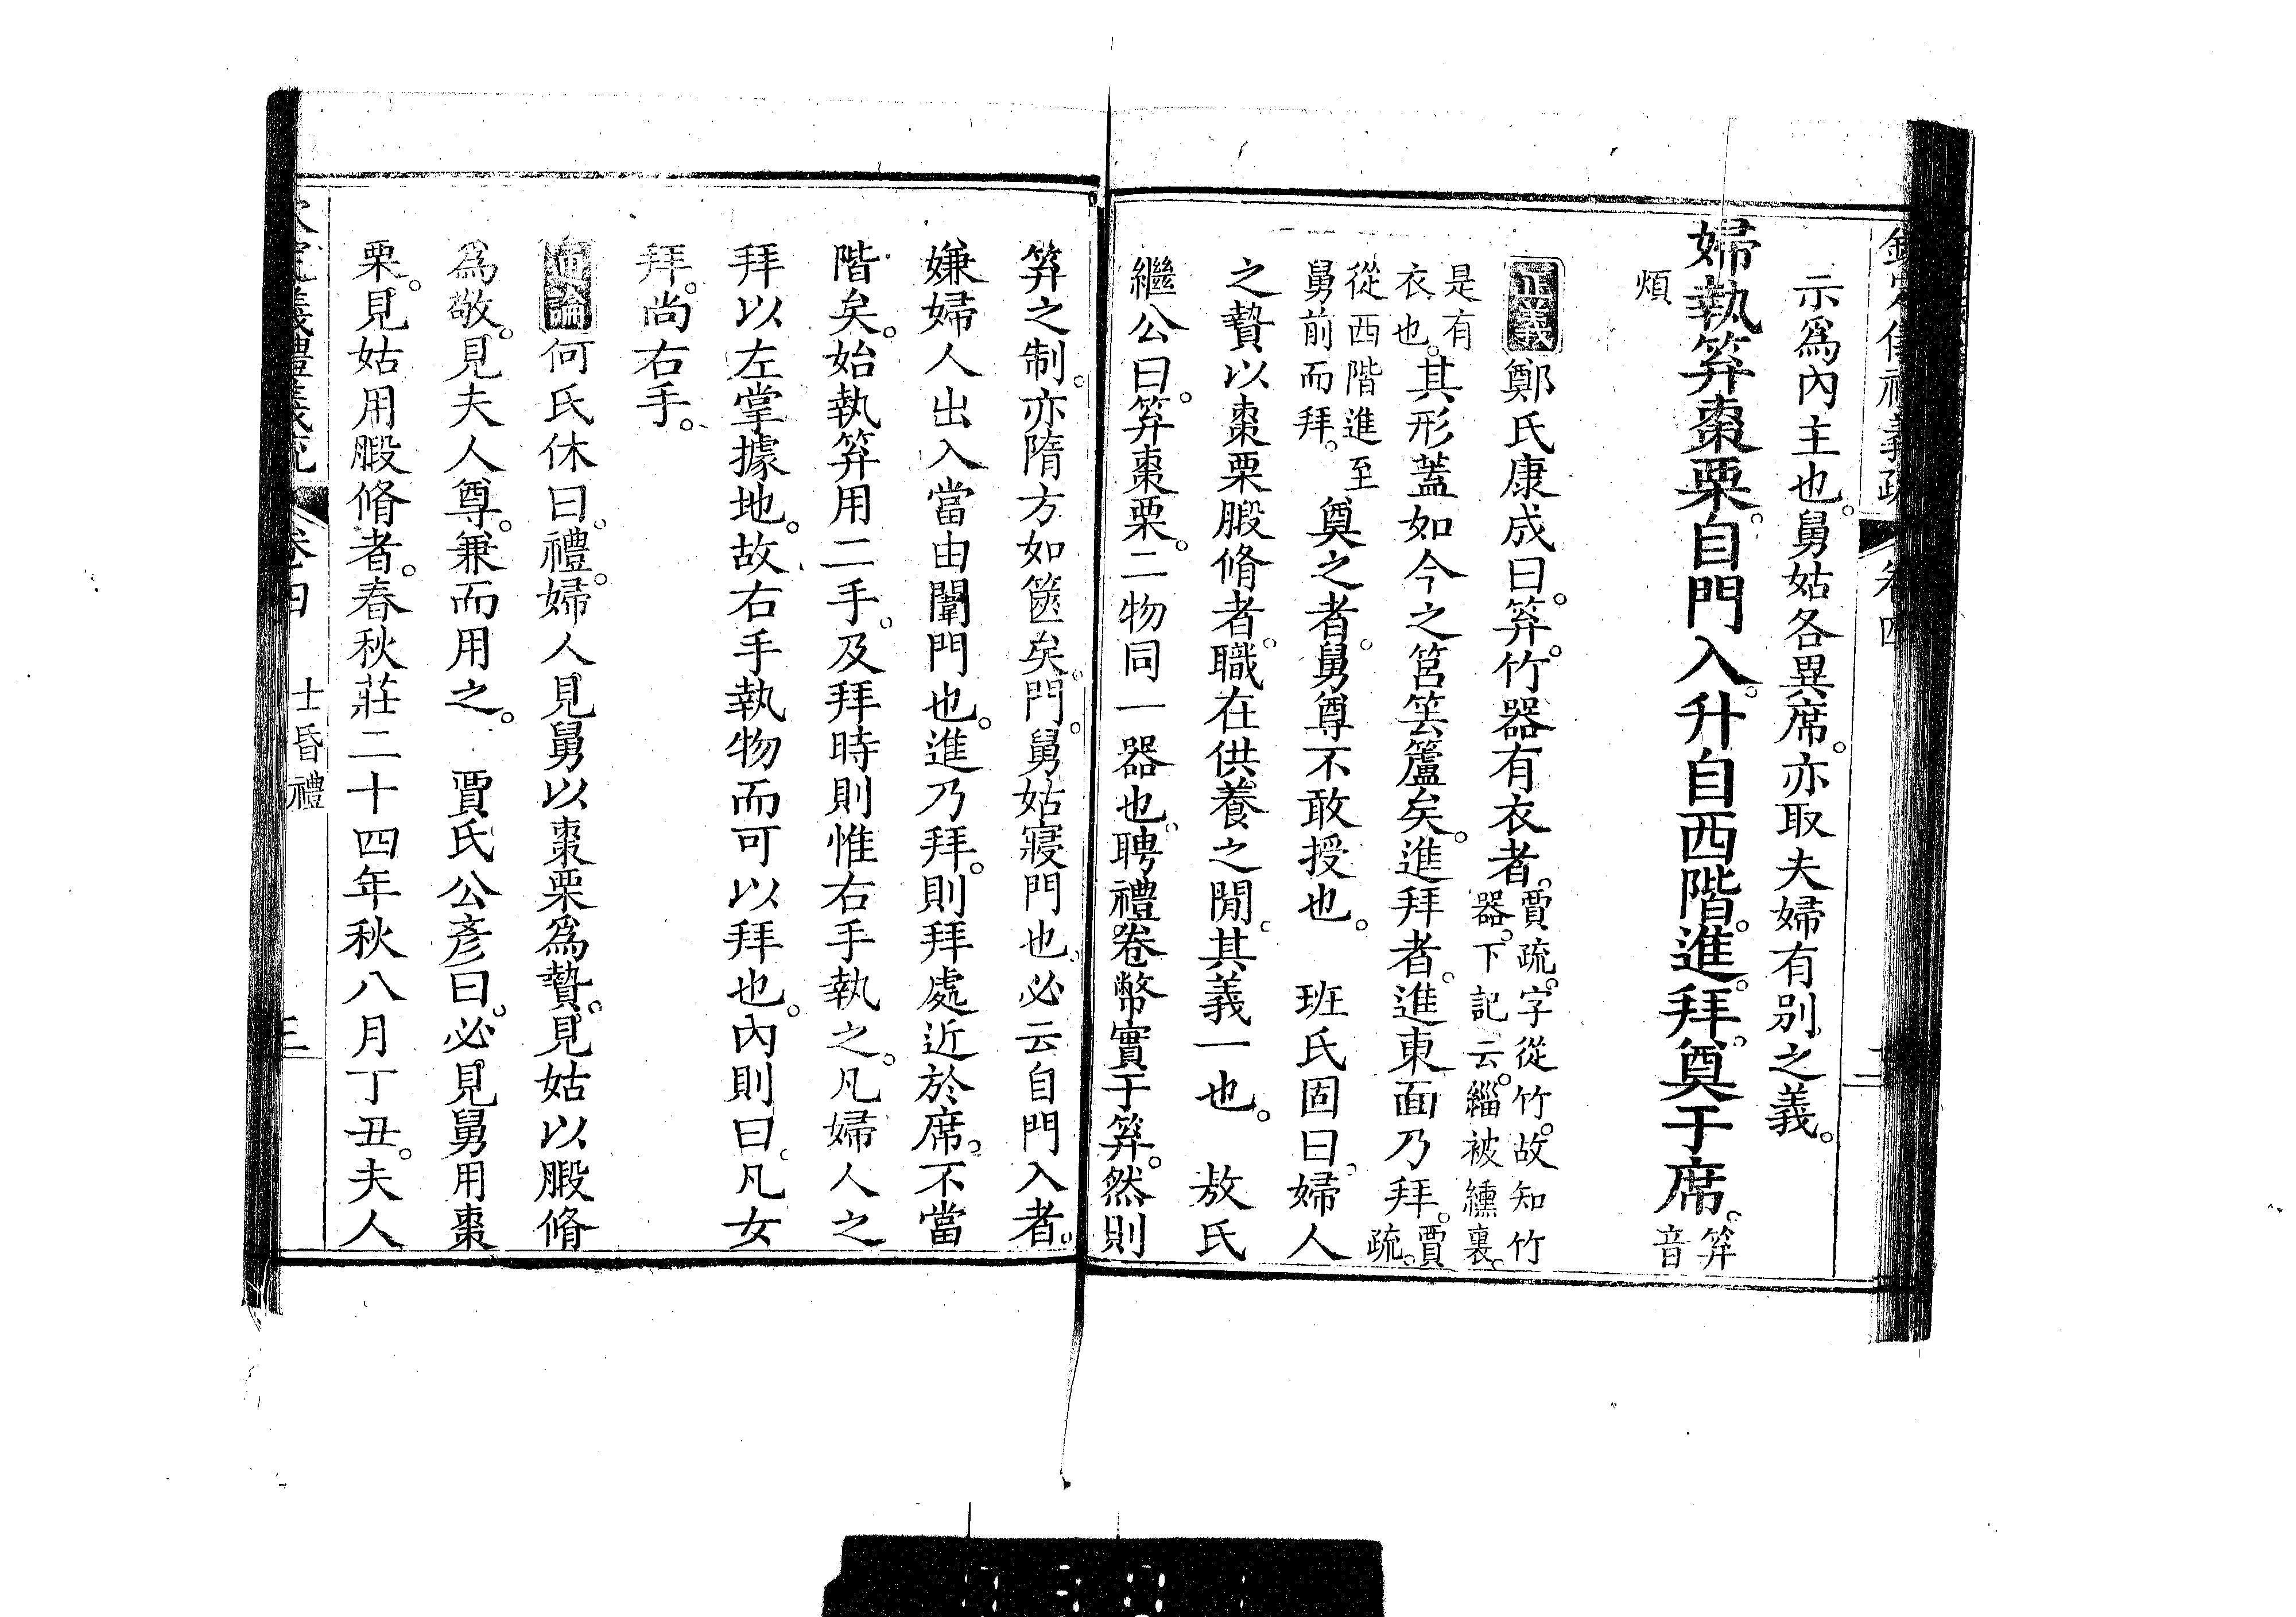 示爲內主也。舅姑各異席。亦取夫婦有別之義。
婦執笲棗栗。自門入。升自西階。進拜。奠于席。笲音
煩
正義鄭氏康成曰。笲。竹器有衣者。賈疏。字從竹。故知竹器。下記云。緇被纁裏。
是有衣也。其形蓋如今之筥䇱籚矣。進拜者。進東面乃拜。賈疏。
從西階進至舅前而拜。奠之者。舅尊不敢授也。　班氏固曰。婦人
之贄以棗栗腶脩者。職在供養之閒。其義一也。　敖氏
繼公曰。笲棗栗。二物同一器也。聘禮卷幣實于笲。然則
笲之制。亦隋方如篋矣。門。舅姑寢門也。必云自門入者。
嫌婦人出入當由闈門也。進乃拜。則拜處近於席。不當
階矣。始執笲用二手。及拜時則惟右手執之。凡婦人之
拜以左掌據地。故右手執物而可以拜也。內則曰。凡女
拜。尚右手。
通論何氏休曰。禮。婦人見舅以棗栗爲贄。見姑以腶脩
爲敬。見夫人尊。兼而用之。　賈氏公彥曰。必見舅用棗
栗。見姑用腶脩者。春秋莊二十四年秋八月丁丑。夫人
卷四　士昏禮　三